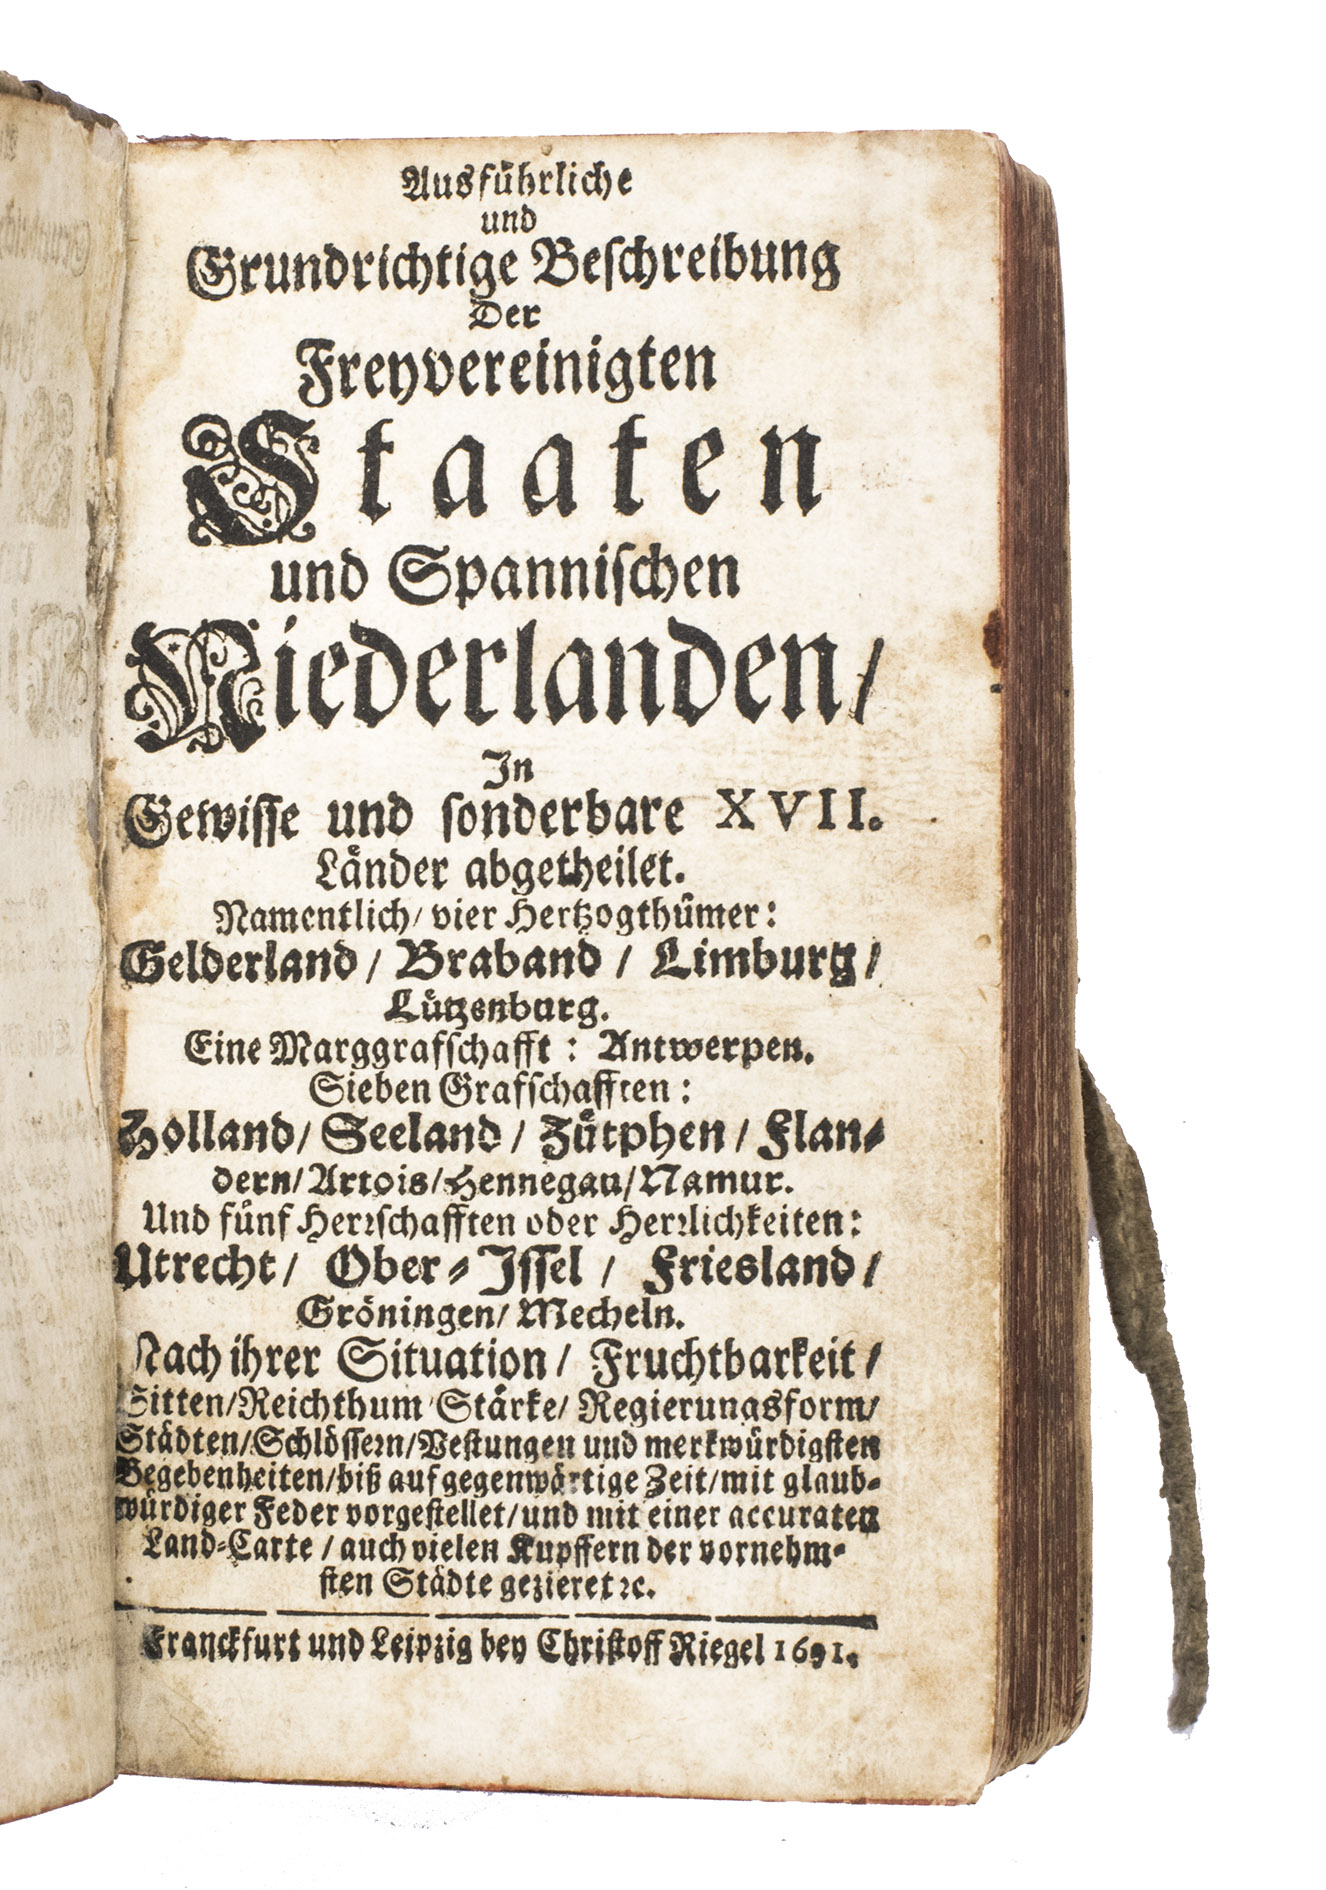 Ausführliche
und
Grundrichtige Beschreibung
Der
Freyvereinigten
Staaten
und Spannischen
Niederlanden/
In
Gewisse und sonderbare XVII.
Länder abgetheilet.
Namentlich/ vier Hertzogthümer:
Gelderland/ Braband/ Limburg/
Lützenburg.
Eine Marggrafschafft: Antwerpen.
Sieben Grafschafften:
Holland/ Seeland/ Zütphen/ Flan-
dern/ Artois/ Hennegau/ Namur.
Und fünf Herrschafften oder Herrlichkeiten:
Utrecht/ Ober-Issel/ Friesland/
Gröningen/ Mecheln.
Nach ihrer Situation/ Fruchtbarkeit/
Sitten/ Reichthum Stärke/ Regierungsform/
Städten/ Schlössern/ Vestungen und merkwürdigsten
Begebenheiten/ biß auf gegenwärtige Zeit/ mit glaub-
würdiger Feder vorgestellet/ und mit einer accuraten
Land-Carte/ auch vielen Kupffern der vornehm-
sten Städte gezieret ꝛc.
Franckfurt und Leipzig bey Christoff Riegel 1691.